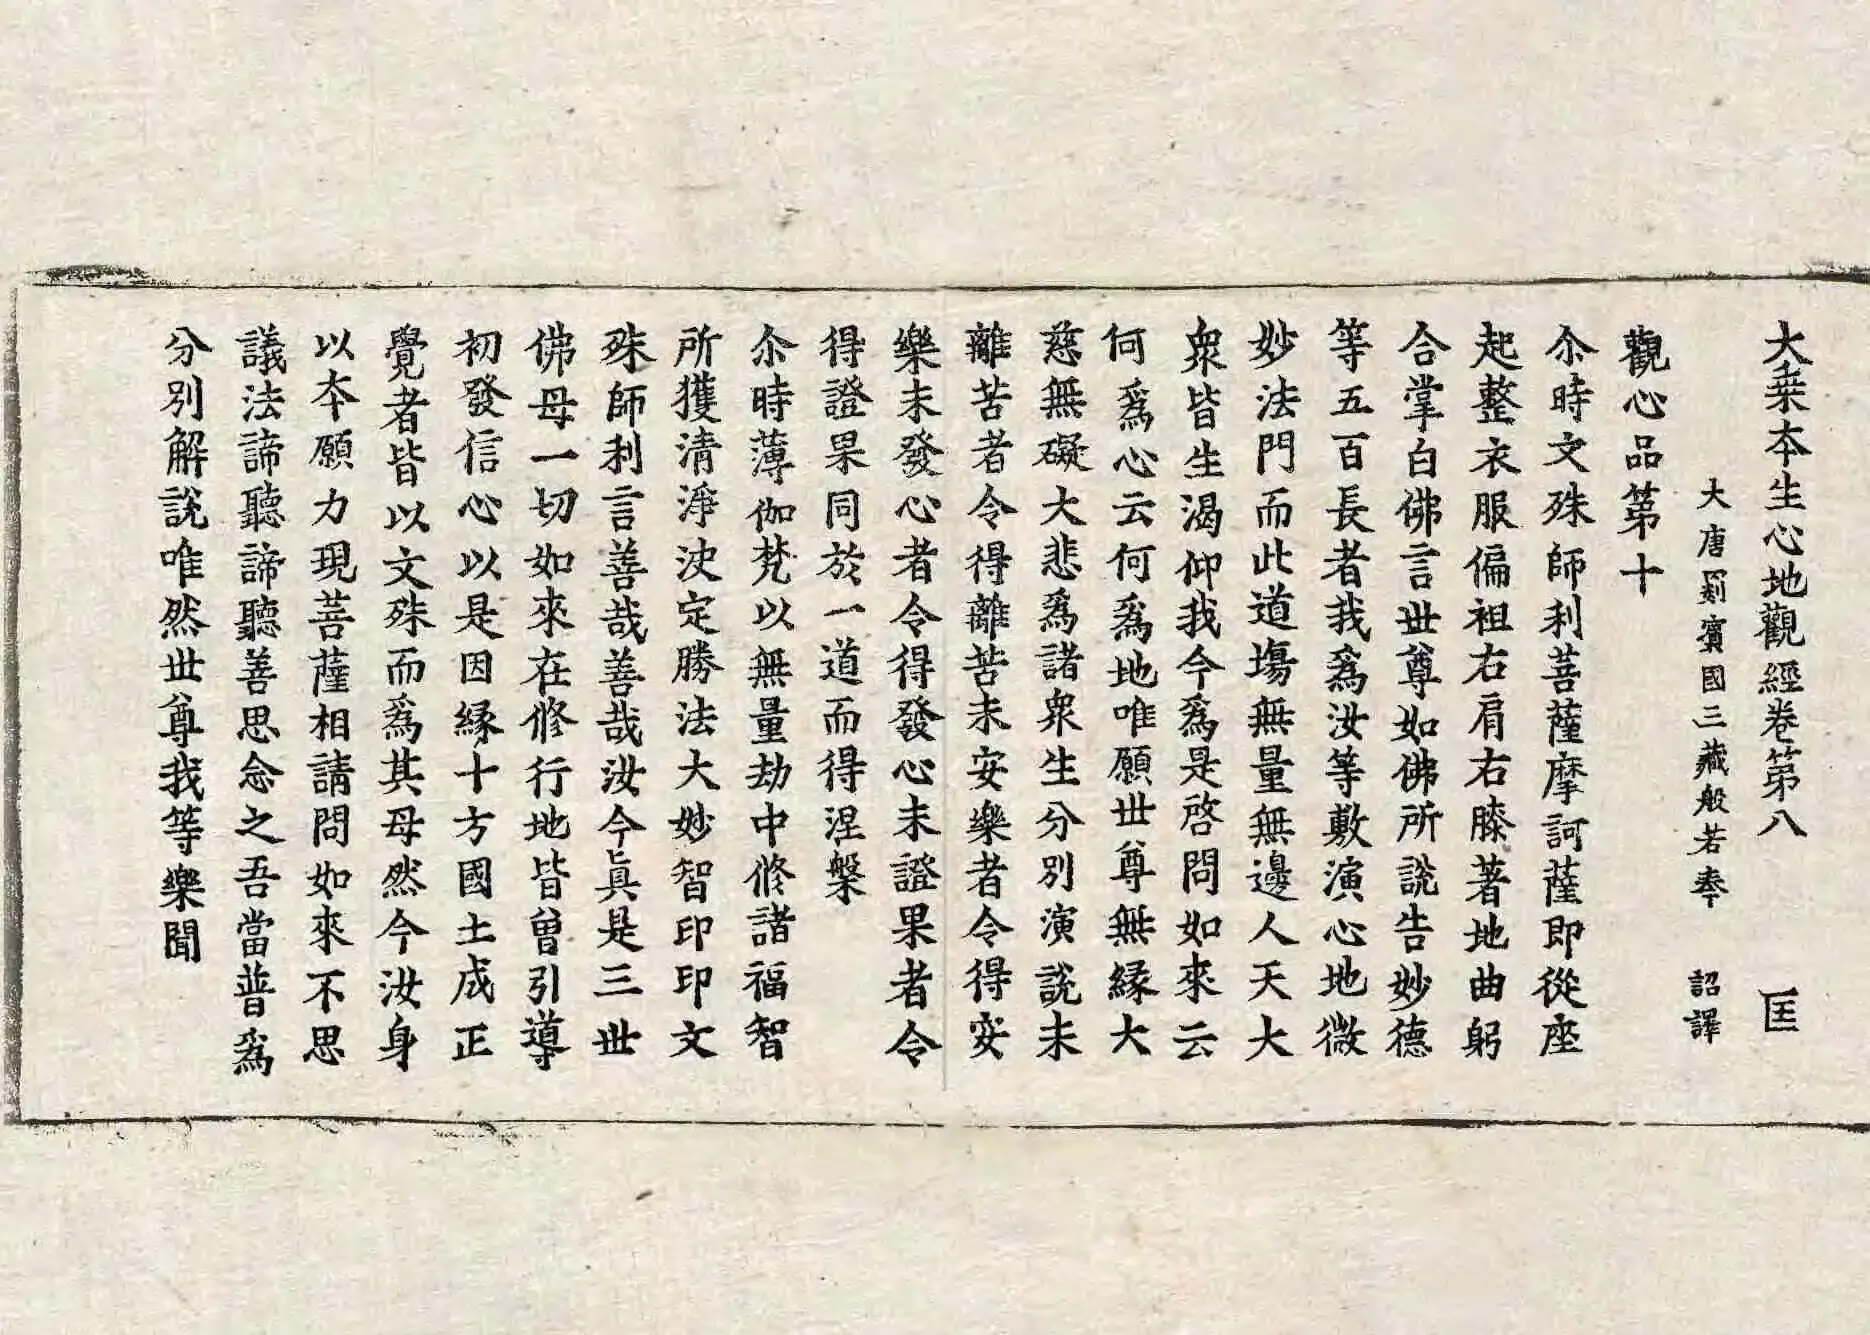 大乗本生心地觀經卷第八 匡
大唐罽賓國三藏般若奉 詔譯
觀心品第十
尒時文殊師利菩薩摩訶薩即從座
起整衣服偏袒右肩右膝著地曲躬
合掌白佛言世尊如佛所說告妙德
等五百長者我爲汝等敷演心地微
妙法門而此道場無量無邊人天大
衆皆生渴仰我今爲是啓問如來云
何爲心云何爲地唯願世尊無緣大
慈無礙大悲爲諸衆生分別演說未
離苦者令得離苦未安樂者令得安
樂未發心者令得發心未證果者令
得證果同於一道而得涅槃
尒時薄伽梵以無量劫中修諸福智
所獲清淨決定勝法大妙智印印文
殊師利言善哉善哉汝今真是三世
佛母一切如來在修行地皆曾引導
初發信心以是因緣十方國土成正
覺者皆以文殊而爲其母然今汝身
以本願力現菩薩相請問如來不思
議法諦聽諦聽善思念之吾當普爲
分別解說唯然世尊我等樂聞